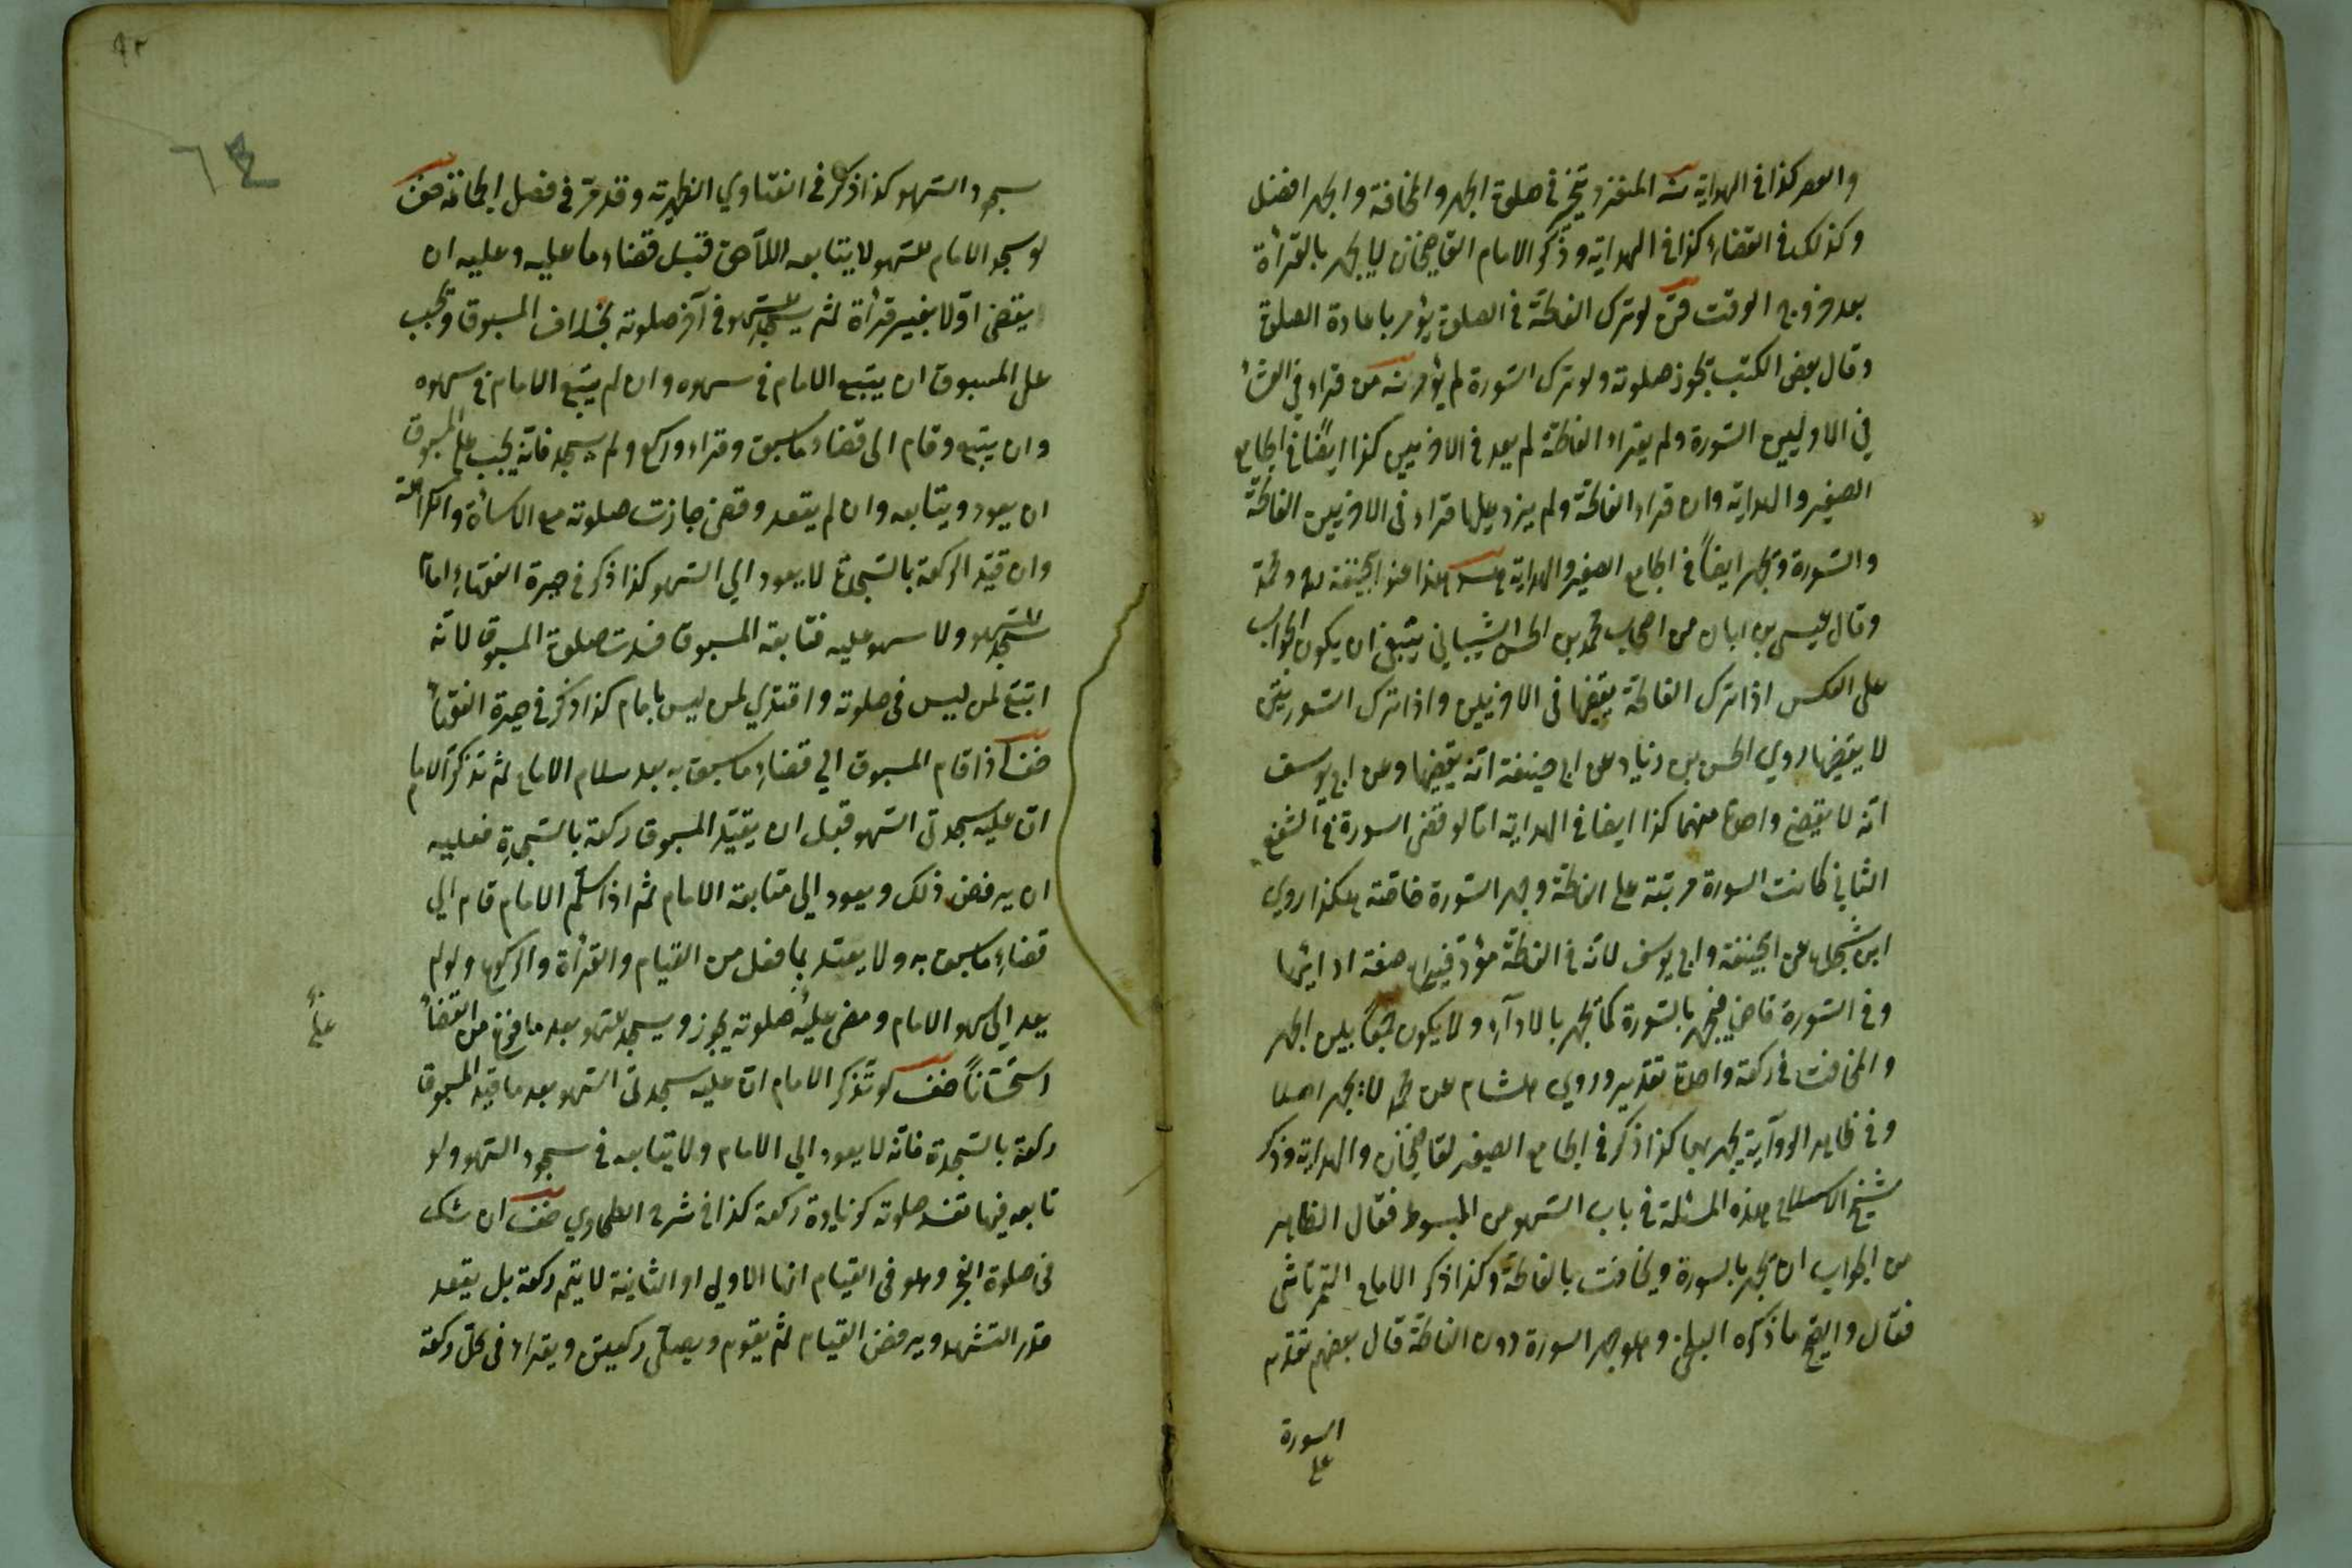 والعصر كذا في الهداية المنفرد يخير في صلوة الجهر والمخافتة والجهر افضل
وكذلك في القضاء كذا في الهداية وذكر الامام القاضيخان لا يجهر بالقرأة
بعد خروج الوقت لو ترك الفاتحة في الصلوة يؤمر باعادة الصلوة
وقال بعض الكتب تجوز صلوته ولو ترك السورة لم يؤمر من قراء في العشاء
في الاوليين السورة ولم يقراء الفاتحة لم يعد في الاخريين كذا ايضا في الجامع
الصغير والهداية وان قراء الفاتحة ولم يزد عليها قراء في الاخريين الفاتحة
والسورة ويجهر ايضاً في الجامع الصغير والهداية هذا عند ابيحنيفة ومحمد
وقال عيسى بن ابان من اصحاب محمد بن الحسن الشيباني ينبغي ان يكون الجواب
على العكس اذا ترك الفاتحة يقضيها في الاخريين واذا ترك السورتين
لا يقضيها روي الحسن بن زياد عن ابي حنيفة انه يقضيها وعن ابي يوسف
انه لا يقضي واحدة منهما كذا ايضا في الهداية اما لو قضى السورة في الشفع
الثاني كانت السورة مرتبة على الفاتحة وجهر السورة خاصة هكذا روي
ابن شجاع عن ابيحنيفة وابي يوسف لانه في الفاتحة مؤد فيها صفة ادائها
وفي السورة قاض فيجهر بالسورة كما يجهر بالادآء ولا يكون جمعا بين الجهر
والمخافتة في ركعة واحدة تقدير وروي هشام عن محمد لا يجهر اصلا
وفي ظاهر الروآية يجهر بهما كذا ذكر في الجامع الصغير لقاضيخان والهداية وذكر
شيخ الاسلام هذه المسئلة في باب السهو من المبسوط فقال الظاهر
من الجواب ان يجهر بالسورة ويخافت بالفاتحة وكذا ذكر الامام التمرتاشي
فقال والصحيح ما ذكره البلخي وهو جهر السورة دون الفاتحة قال بعضهم تقدم
السورة
على
٩٢
٦٤
سجود السهو كذا ذكر في الفتاوي الظهيرية وقد مر في فصل الخافتة صف
لو سجد الامام للسهو لا يتابعه اللآحق قبل قضاء ما عليه وعليه ان
يقضى اوّلا بغير قرأة ثم يسجد للسهو في آخر صلوته بخلاف المسبوق ويجب
على المسبوق ان يتبع الامام في سهوه وان لم يتبع الامام في سهوه
وان يتبع وقام الى قضاء ما سبق وقراء وركع ولم يسجد فانه يجب على المسبوق
ان يعود ويتابعه وان لم يتعد وقضى جازت صلوته مع الاساءة والكراهة
وان قيد الركعة بالسجدة لا يعود الي السهو كذا ذكر في حيرة الفقهاء امام
سجد للسهو ولا سهو عليه فتابعه المسبوق فسدت صلوة المسبوق لانه
اتبع لمن ليس في صلوته واقتدي لمن ليس بامام كذا ذكر في حيرة الفقهاء
صف اذا قام المسبوق الي قضاء ما سبق به بعد سلام الامام ثم تذكر الامام
ان عليه سجدتى السهو قبل ان يقيد المسبوق ركعة بالسجدة فعليه
ان يرفض ذلك ويعود الى متابعة الامام ثم اذا سلم الامام قام الي
قضاء ما سبق به ولا يعتد بما فعل من القيام والقرأة والركوع ولو لم
يعد الى سهو الامام ومضى عليه صلوته يجوز ويسجد للسهو بعد ما فرغ من القضاء
استحساناً صف لو تذكر الامام ان عليه سجدتى السهو بعد ما قيد المسبوق
ركعة بالسجدة فانه لا يعود الي الامام ولا يتابعه في سجود السهو ولو
تابعه فيها تفسد صلوته كزيادة ركعة كذا في شرح الطحاوي صف ان شك
في صلوة الفجر وهو في القيام انها الاولى او الثانية لا يتم ركعة بل يقعد
قدر التشهد ويرفض القيام ثم يقوم ويصلى ركعتين ويقراء في كل ركعة